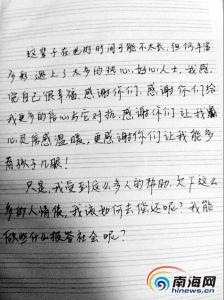 这辈子在世的时间可能不太长，但何其幸
多彩，遇上了太多的热心、好心人士，我感
觉自己很幸福，感谢你们，感谢你们给
我更多的信心与死对抗，感谢你们让我
心是倍感温暖，更感谢你们让我能多
看孩子几眼！
只是，我受到这么多人的帮助，欠下这么
多的人情债，我该如何去偿还呢？我能
做些什么报答社会呢？
南海网
hinews.cn